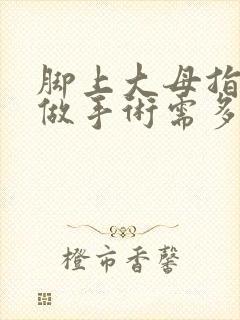 脚上大母指
做手术需多
橙市香馨